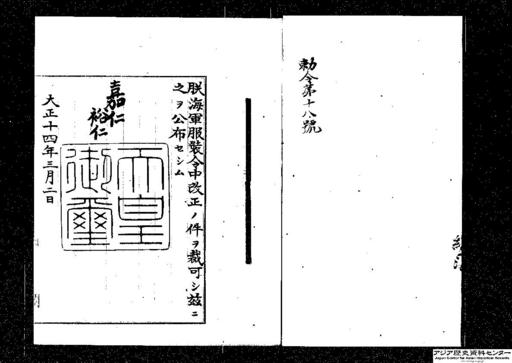 勅令第十八號
朕海軍服裝令中改正ノ件ヲ裁可シ茲ニ
之ヲ公布セシム
嘉仁
裕仁
天皇
御璽
大正十四年三月二日
アジア歴史資料センター
Japan Center for Asian Historical Records